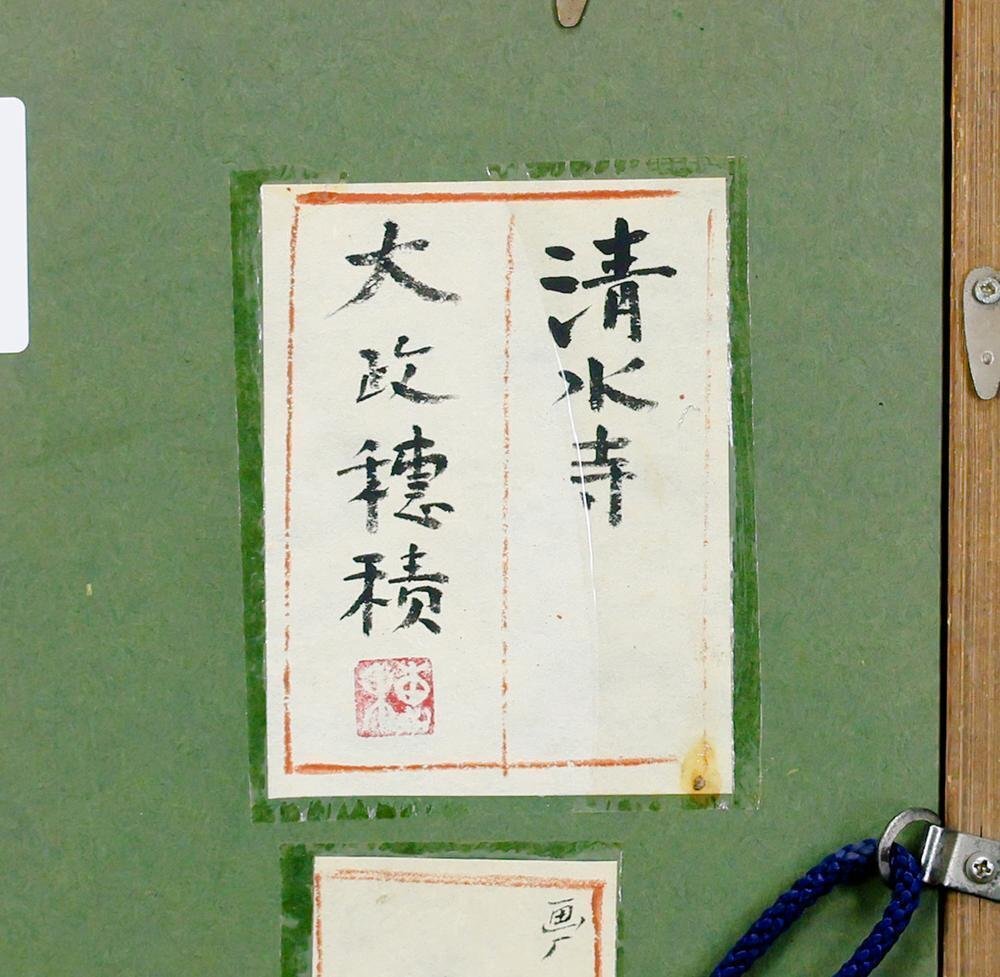 清水寺
大政穂積
画